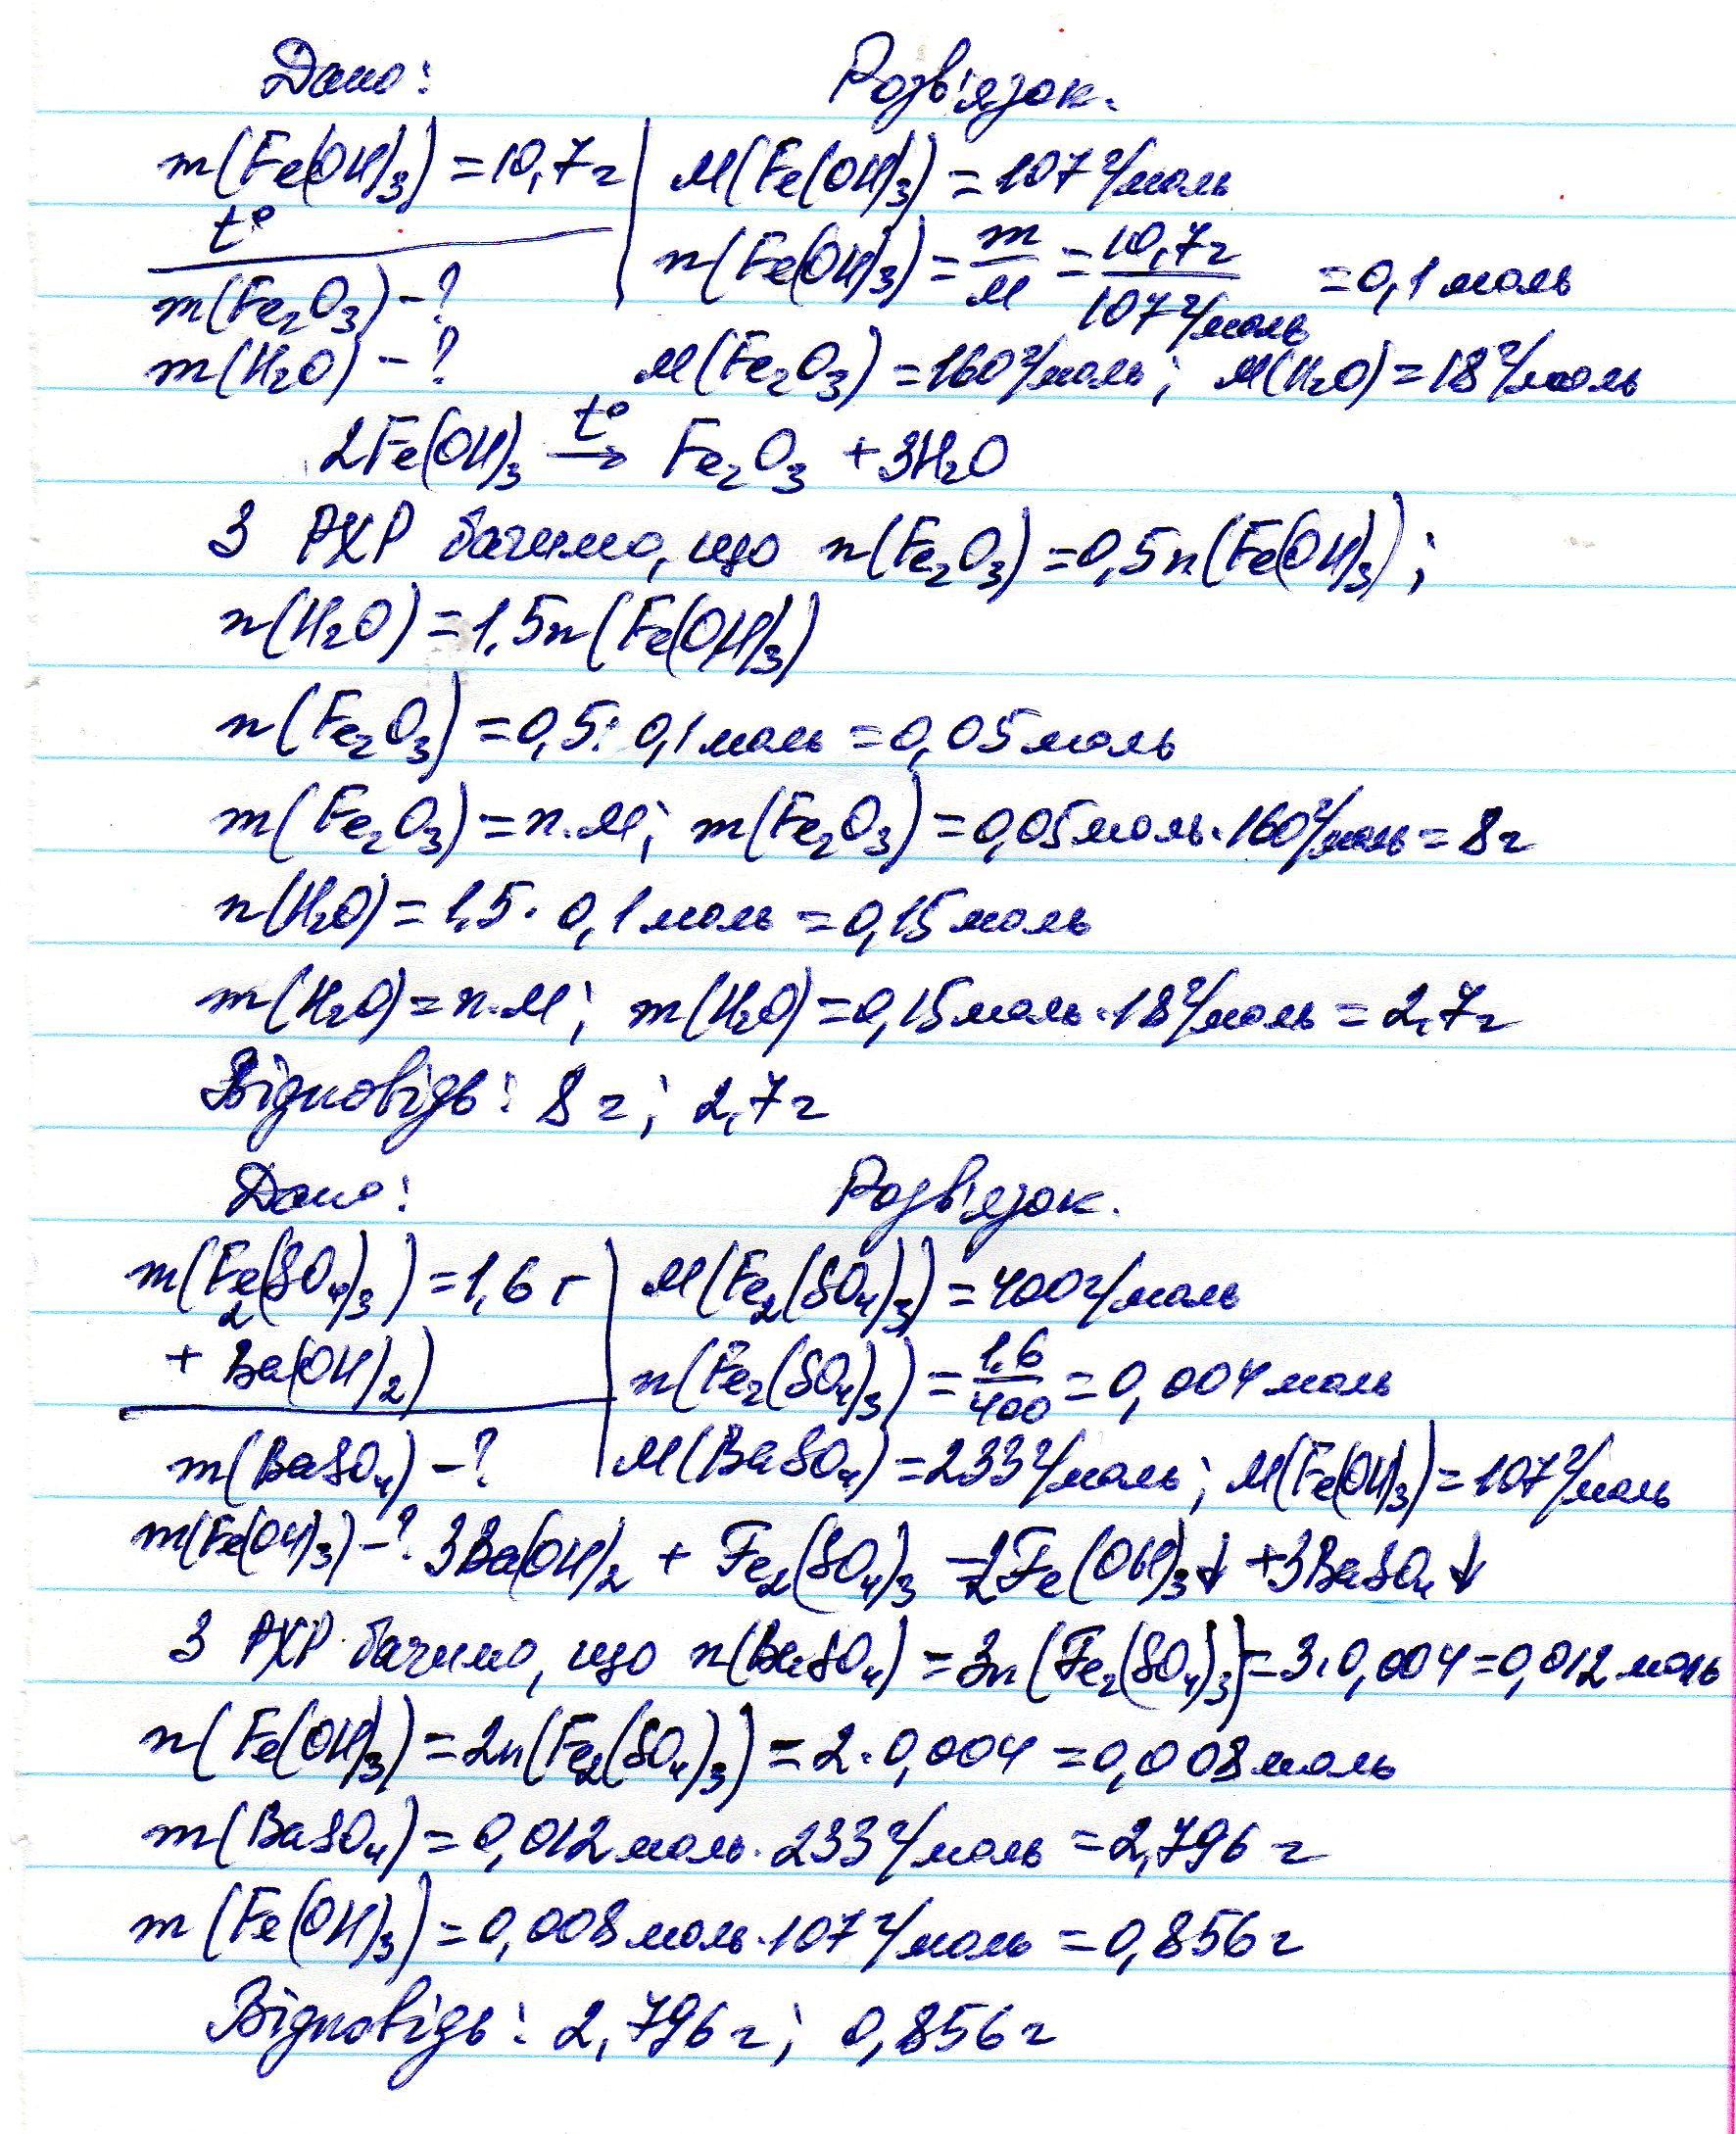 Дано: Розв'язок.
m(Fe(OH)₃) = 10,7 г M(Fe(OH)₃) = 107 г/моль
t° n(Fe(OH)₃) = m/M = 10,7 г/107 г/моль = 0,1 моль
m(Fe₂O₃) - ?
m(H₂O) - ? M(Fe₂O₃) = 160 г/моль; M(H₂O) = 18 г/моль
2Fe(OH)₃ t°→ Fe₂O₃ + 3H₂O
З РХР бачимо, що n(Fe₂O₃) = 0,5n(Fe(OH)₃);
n(H₂O) = 1,5n(Fe(OH)₃)
n(Fe₂O₃) = 0,5· 0,1 моль = 0,05 моль
m(Fe₂O₃) = n·M; m(Fe₂O₃) = 0,05 моль·160 г/моль = 8 г
n(H₂O) = 1,5· 0,1 моль = 0,15 моль
m(H₂O) = n·M; m(H₂O) = 0,15 моль·18 г/моль = 2,7 г
Відповідь: 8 г; 2,7 г
Дано: Розв'язок.
m(Fe₂(SO₄)₃) = 1,6 г M(Fe₂(SO₄)₃) = 400 г/моль
+ Ba(OH)₂) n(Fe₂(SO₄)₃) = 1,6/400 = 0,004 моль
m(BaSO₄) - ? M(BaSO₄) = 233 г/моль; M(Fe(OH)₃) = 107 г/моль
m(Fe(OH)₃) - ? 3Ba(OH)₂ + Fe₂(SO₄)₃ = 2Fe(OH)₃↓ + 3BaSO₄↓
З РХР бачимо, що n(BaSO₄) = 3n(Fe₂(SO₄)₃) = 3·0,004 = 0,012 моль
n(Fe(OH)₃) = 2n(Fe₂(SO₄)₃) = 2·0,004 = 0,008 моль
m(BaSO₄) = 0,012 моль·233 г/моль = 2,796 г
m(Fe(OH)₃) = 0,008 моль·107 г/моль = 0,856 г
Відповідь: 2,796 г; 0,856 г